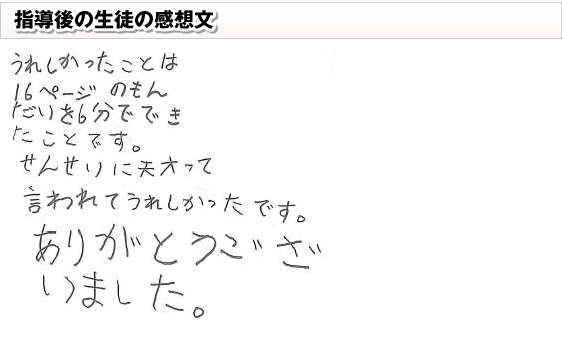 指導後の生徒の感想文
うれしかったことは
16ページのもん
だいを6分ででき
たことです。
せんせいに天才って
言われてうれしかったです。
ありがとうござ
いました。